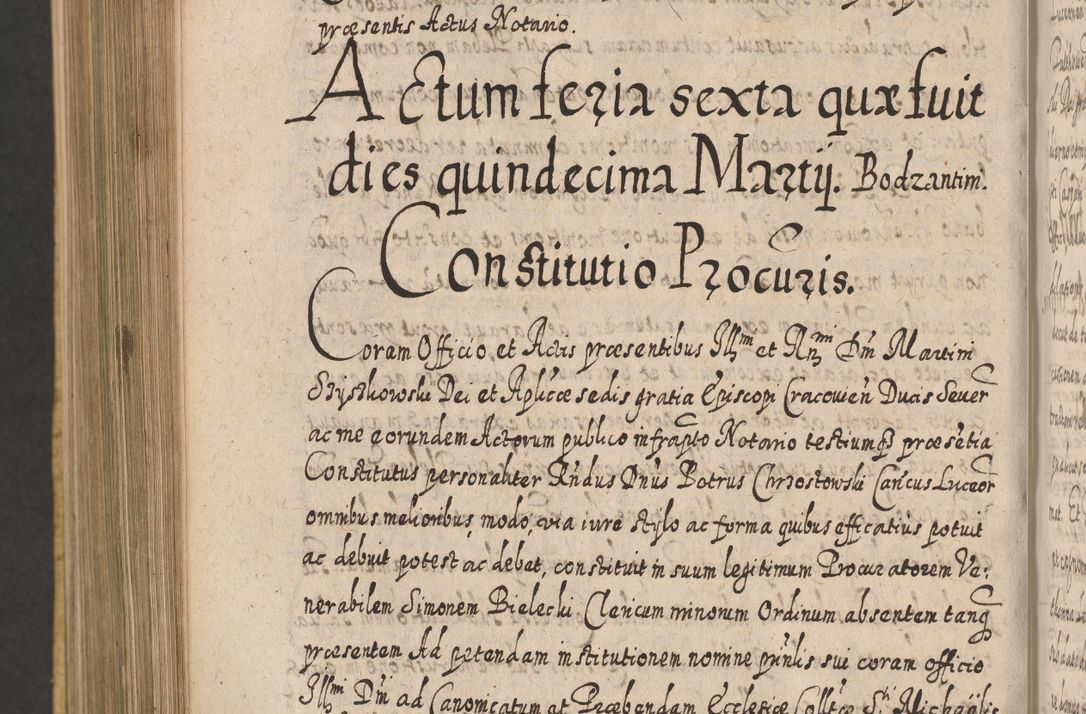 præsentis Actus Notario.
Actum feria sexta quæ fuit
dies quindecima Martij. Bodzantim.
Constitutio Procuris.
Coram Officio et Actis præsentibus Illmi et Rmi Dni Martini
Szyszkowski Dei et Aplicæ sedis gratia Episcopi Cracovien Ducis Sever
ac me eorundem Actorum publico infrapto Notario testiumq præsetia
Constitutus personaliter Rndus Dnus Petrus Chrzostowski Cancus Luceor
omnibus melioribus modo, via iure stylo ac forma quibus efficatius potuit
ac debuit potest ac debet, constituit in suum legitimum Procuratorem Ve:
nerabilem Simonem Bielecki Clericum minorum Ordinum absentem tanq
præsentem Ad petendam institutionem nomine prinlis sui coram officio
Illmi Dni ad Canonicatum et Præbendam Ecclesiæ Colltæ Sti Michaelis